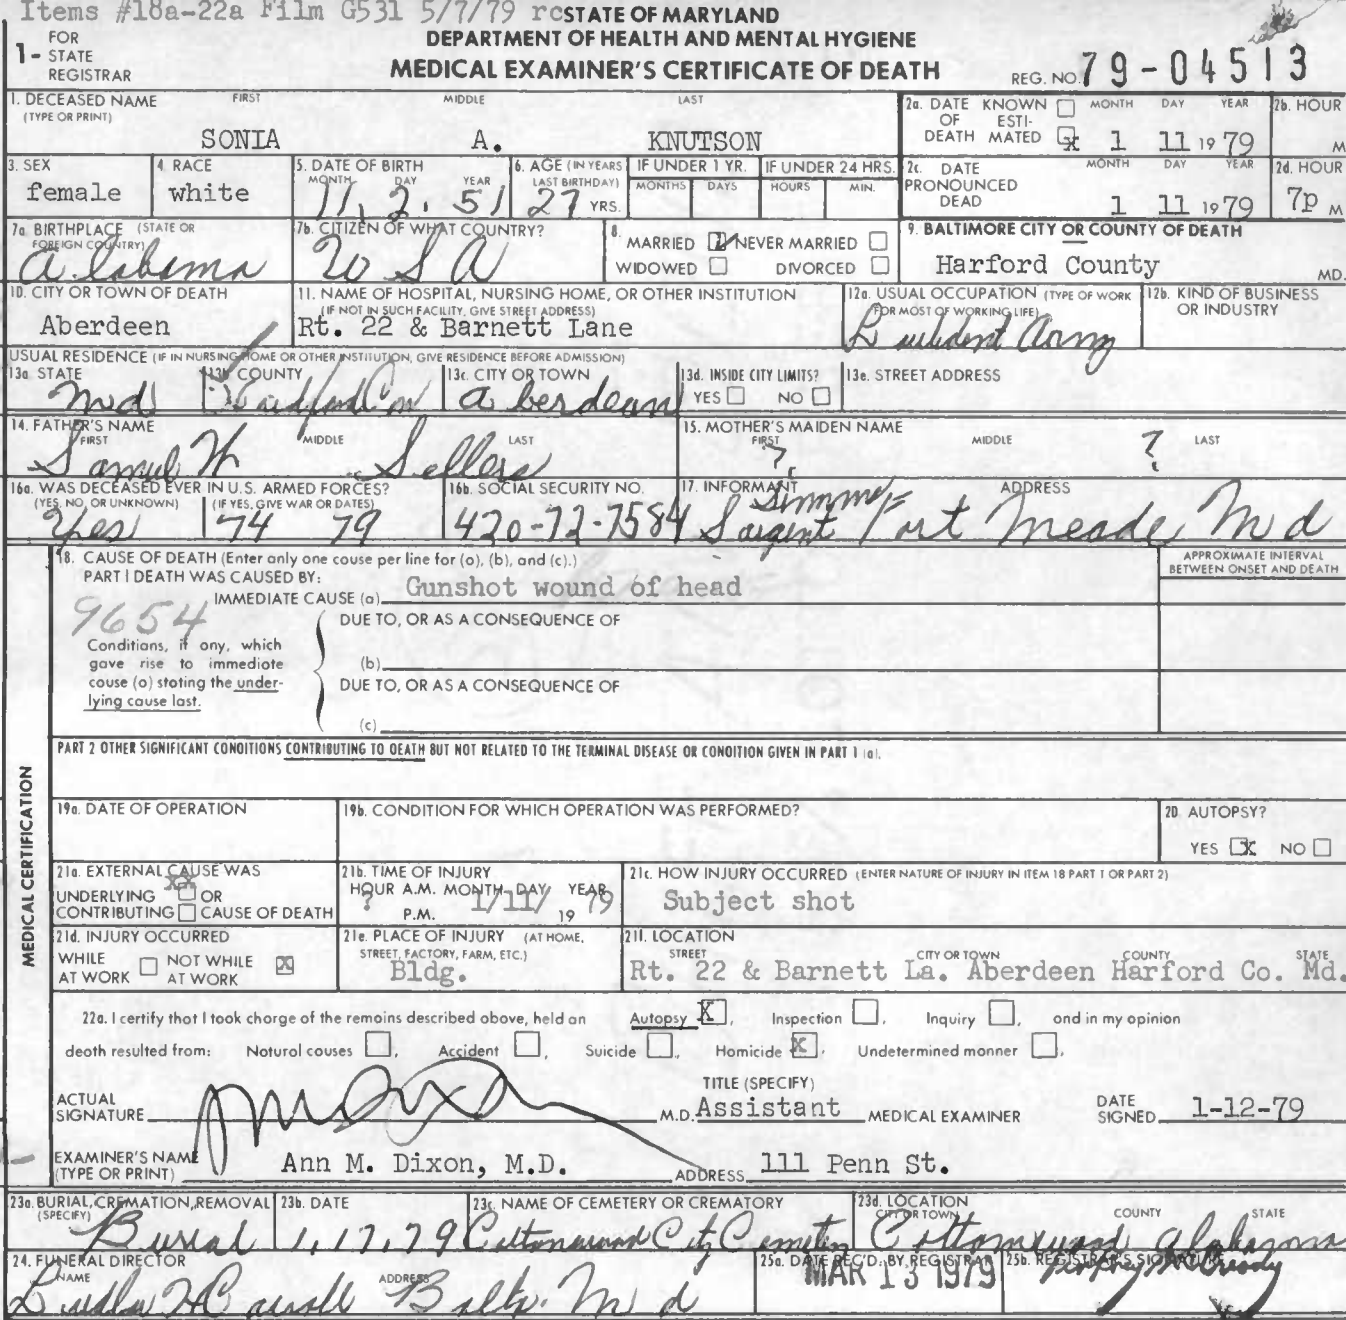 Items #18a-22a Film G531 5/7/79 rc
STATE OF MARYLAND
DEPARTMENT OF HEALTH AND MENTAL HYGIENE
MEDICAL EXAMINER'S CERTIFICATE OF DEATH
1- FOR STATE REGISTRAR
REG. NO. 79-04513
1. DECEASED NAME (TYPE OR PRINT) FIRST MIDDLE LAST
SONIA A. KNUTSON
2a. DATE OF DEATH KNOWN ☐ ESTIMATED ☒ MONTH DAY YEAR 1 11 1979
2b. HOUR M
3. SEX female
4. RACE white
5. DATE OF BIRTH MONTH DAY YEAR 11, 2. 51
6. AGE (IN YEARS LAST BIRTHDAY) 27 YRS.
IF UNDER 1 YR. MONTHS DAYS
IF UNDER 24 HRS. HOURS MIN.
2c. DATE PRONOUNCED DEAD MONTH DAY YEAR 1 11 1979
2d. HOUR 7p M
7a. BIRTHPLACE (STATE OR FOREIGN COUNTRY) Alabama
7b. CITIZEN OF WHAT COUNTRY? U S A
8. MARRIED ☑ NEVER MARRIED ☐
WIDOWED ☐ DIVORCED ☐
9. BALTIMORE CITY OR COUNTY OF DEATH
Harford County MD.
10. CITY OR TOWN OF DEATH Aberdeen
11. NAME OF HOSPITAL, NURSING HOME, OR OTHER INSTITUTION (IF NOT IN SUCH FACILITY, GIVE STREET ADDRESS)
Rt. 22 & Barnett Lane
12a. USUAL OCCUPATION (TYPE OF WORK FOR MOST OF WORKING LIFE)
Army
12b. KIND OF BUSINESS OR INDUSTRY
USUAL RESIDENCE (IF IN NURSING HOME OR OTHER INSTITUTION, GIVE RESIDENCE BEFORE ADMISSION)
13a. STATE Md
13b. COUNTY Hardford Co
13c. CITY OR TOWN aberdean
13d. INSIDE CITY LIMITS? YES ☐ NO ☐
13e. STREET ADDRESS
14. FATHER'S NAME FIRST MIDDLE LAST
Samuel H Sellers
15. MOTHER'S MAIDEN NAME FIRST MIDDLE LAST
? ?
16a. WAS DECEASED EVER IN U.S. ARMED FORCES? (YES, NO, OR UNKNOWN) (IF YES, GIVE WAR OR DATES)
Yes 74 79
16b. SOCIAL SECURITY NO. 420-72-7584
17. INFORMANT ADDRESS
Sargent Fort Meade Md
18. CAUSE OF DEATH (Enter only one cause per line for (a), (b), and (c).)
APPROXIMATE INTERVAL BETWEEN ONSET AND DEATH
PART I DEATH WAS CAUSED BY:
IMMEDIATE CAUSE (a) Gunshot wound of head
9654
DUE TO, OR AS A CONSEQUENCE OF
Conditions, if any, which gave rise to immediate cause (a) stating the underlying cause last.
(b)
DUE TO, OR AS A CONSEQUENCE OF
(c)
PART 2 OTHER SIGNIFICANT CONDITIONS CONTRIBUTING TO DEATH BUT NOT RELATED TO THE TERMINAL DISEASE OR CONDITION GIVEN IN PART 1 (a).
MEDICAL CERTIFICATION
19a. DATE OF OPERATION
19b. CONDITION FOR WHICH OPERATION WAS PERFORMED?
20. AUTOPSY?
YES ☒ NO ☐
21a. EXTERNAL CAUSE WAS
UNDERLYING ☐ OR
CONTRIBUTING ☐ CAUSE OF DEATH
21b. TIME OF INJURY
HOUR A.M. MONTH DAY YEAR
P.M. ? 1/11/ 19 79
21c. HOW INJURY OCCURRED (ENTER NATURE OF INJURY IN ITEM 18 PART 1 OR PART 2)
Subject shot
21d. INJURY OCCURRED
WHILE AT WORK ☐ NOT WHILE AT WORK ☒
21e. PLACE OF INJURY (AT HOME, STREET, FACTORY, FARM, ETC.)
Bldg.
21f. LOCATION STREET CITY OR TOWN COUNTY STATE
Rt. 22 & Barnett La. Aberdeen Harford Co. Md.
22a. I certify that I took charge of the remains described above, held an Autopsy ☒, Inspection ☐, Inquiry ☐, and in my opinion
death resulted from: Natural causes ☐, Accident ☐, Suicide ☐, Homicide ☒, Undetermined manner ☐.
ACTUAL SIGNATURE M.D.
TITLE (SPECIFY) Assistant MEDICAL EXAMINER
DATE SIGNED 1-12-79
EXAMINER'S NAME (TYPE OR PRINT) Ann M. Dixon, M.D. ADDRESS 111 Penn St.
23a. BURIAL, CREMATION, REMOVAL (SPECIFY) Burial
23b. DATE 1,17,79
23c. NAME OF CEMETERY OR CREMATORY
Cottonwood City Cemetery
23d. LOCATION CITY OR TOWN COUNTY STATE
Cottonwood Alabama
24. FUNERAL DIRECTOR NAME ADDRESS
Balto. Md
25a. DATE REC'D. BY REGISTRAR MAR 13 1979
25b. REGISTRAR'S SIGNATURE